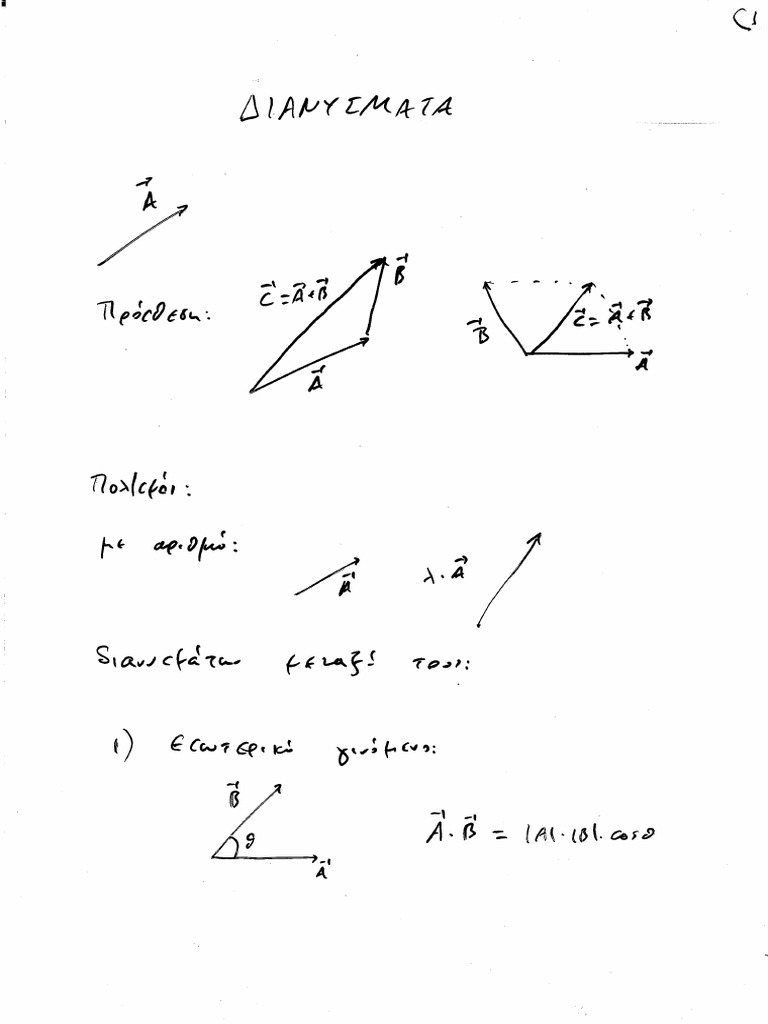 ΔΙΑΝΥΣΜΑΤΑ
A⃗
Πρόσθεση: C⃗ = A⃗ + B⃗ B⃗ A⃗ B⃗ C⃗ = A⃗ + B⃗ A⃗
Πολ/σμοί:
με αριθμό: A⃗ λ · A⃗
διανυσμάτων μεταξύ τους:
1) εσωτερικό γινόμενο:
B⃗ θ A⃗ A⃗ · B⃗ = |A| · |B| · cosθ